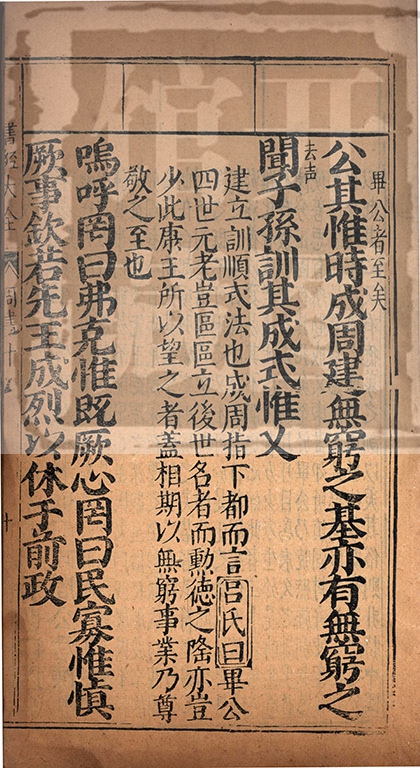 畢公者至矣
公其惟時成周建無窮之基亦有無窮之
去声
聞子孫訓其成式惟乂
建立訓順式法也成周指下都而言呂氏曰畢公
四世元老豈區區立後世名者而勲德之隆亦豈
少此康王所以望之者蓋相期以無窮事業乃尊
敬之至也
嗚呼罔曰弗克惟既厥心罔曰民寡惟慎
厥事欽若先王成烈以休于前政
書經大全
周書十
十